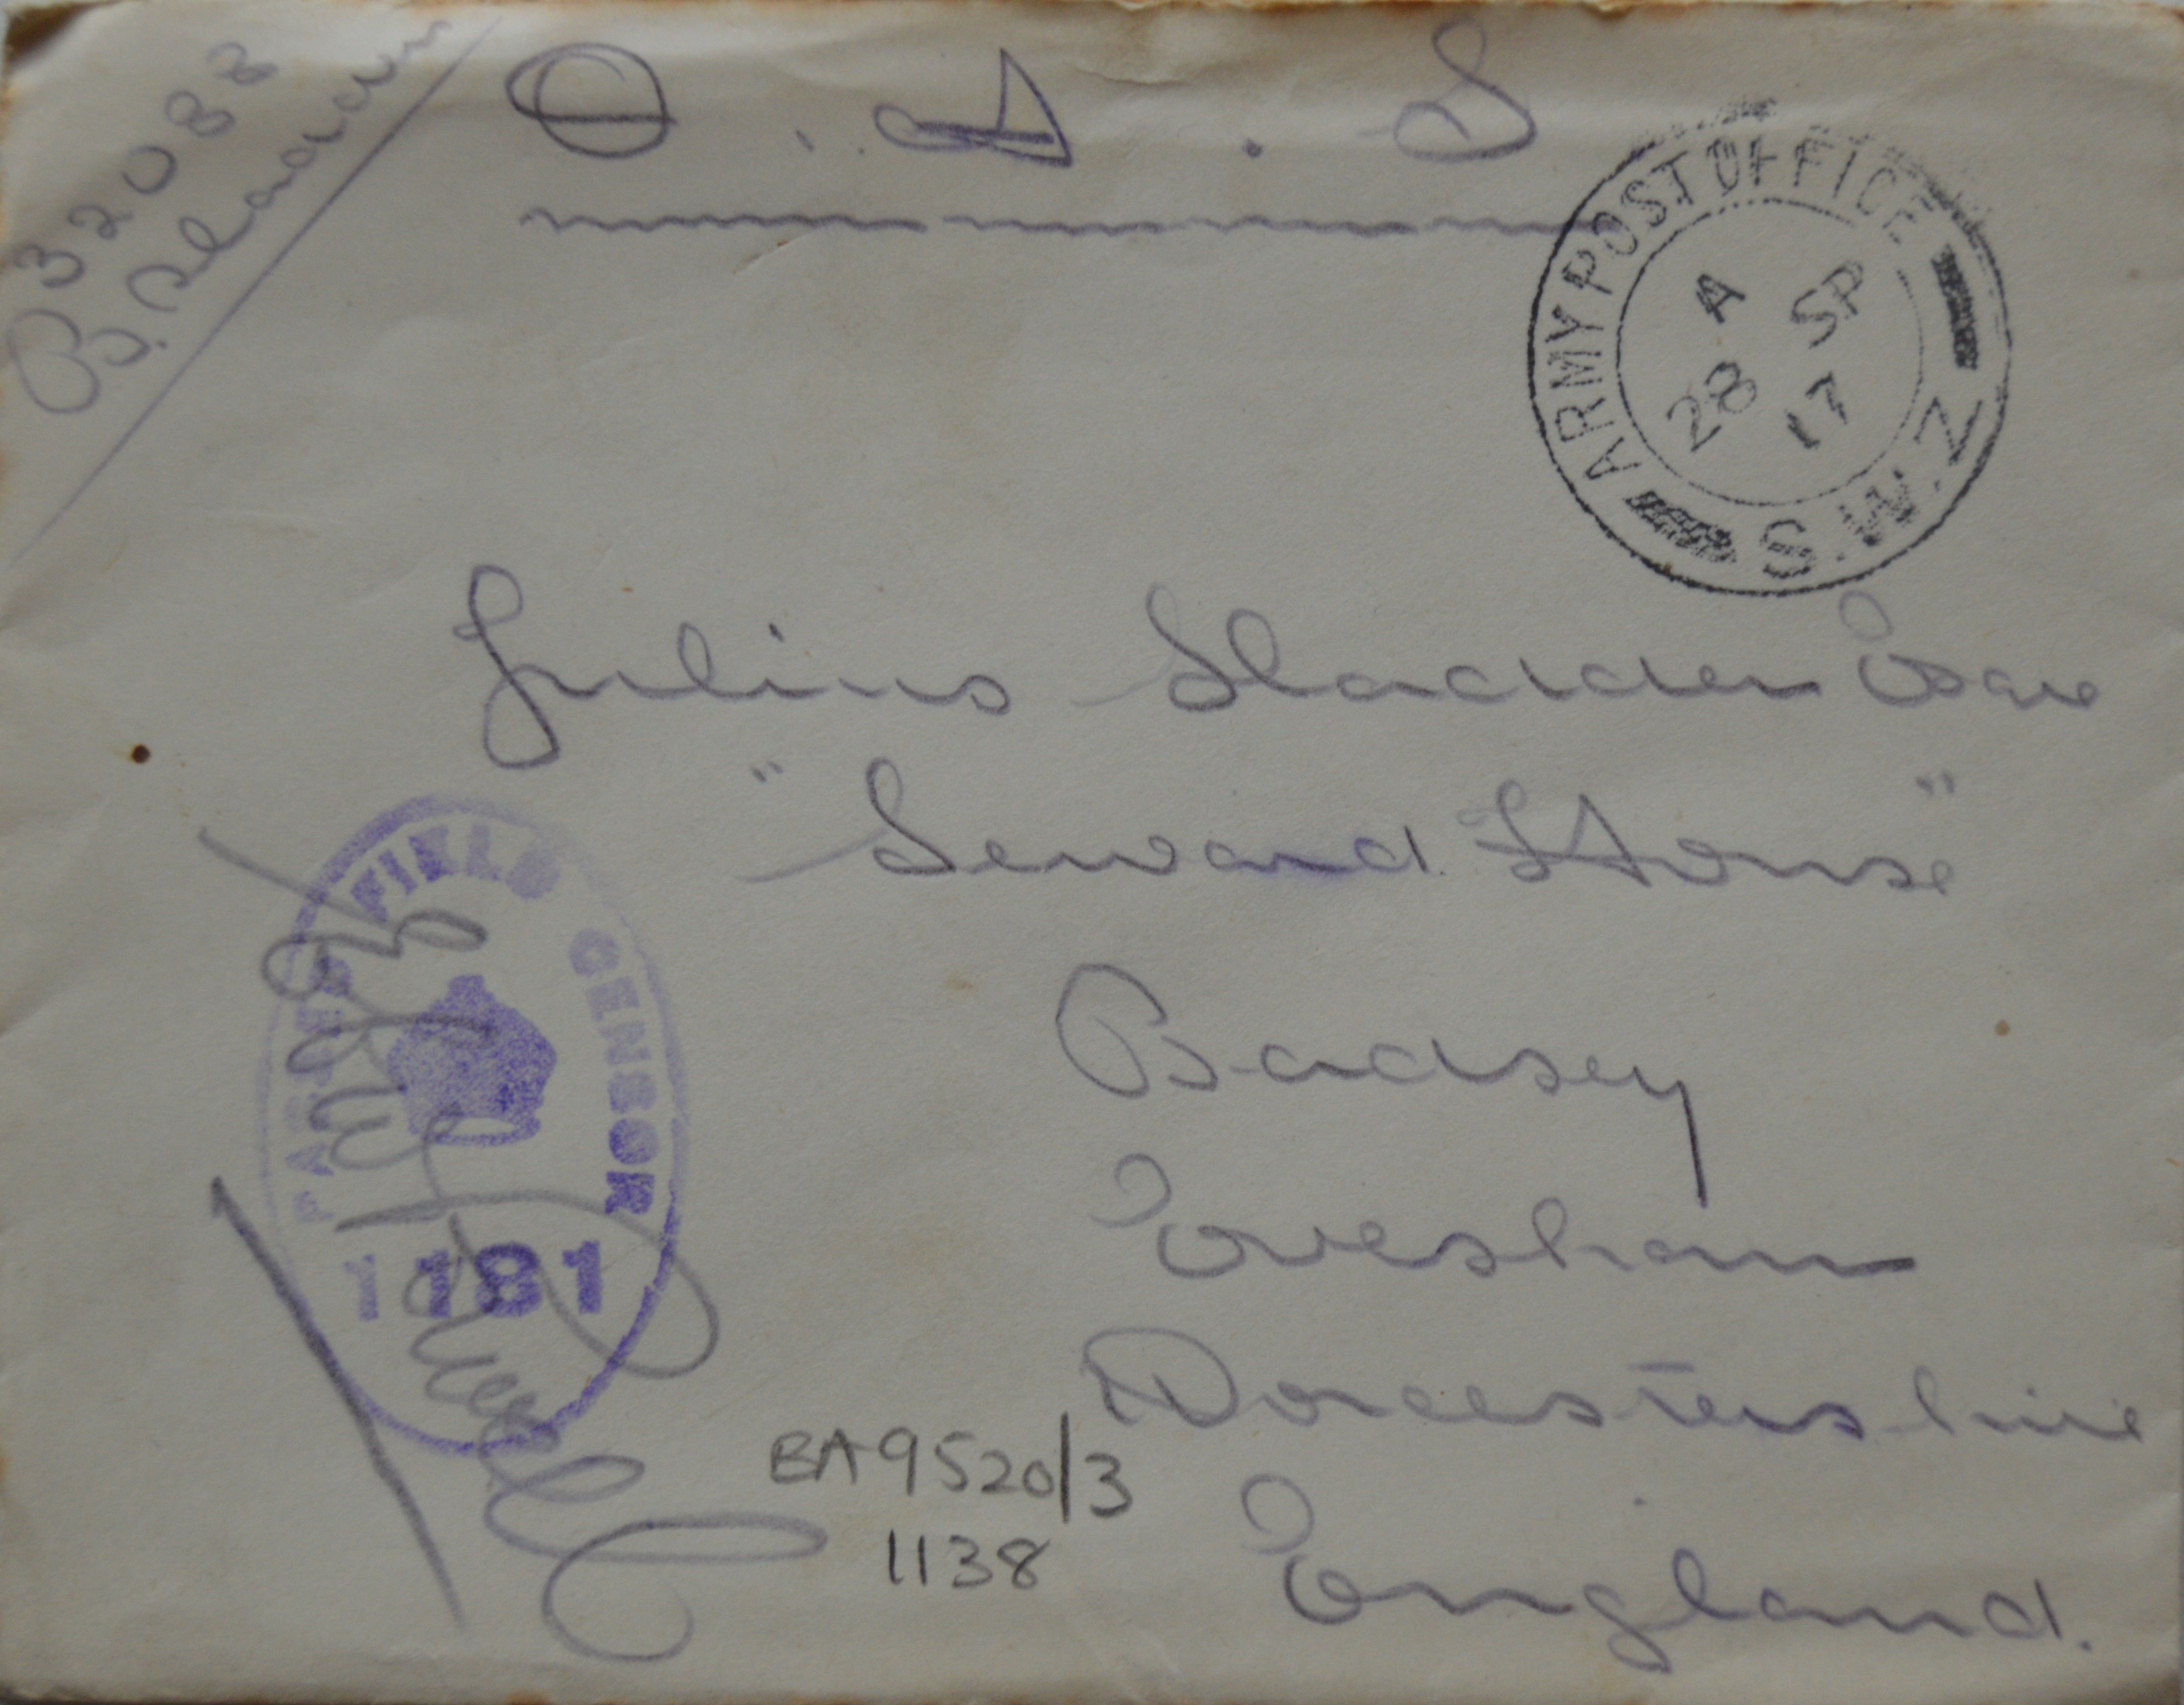 32083
O.A.S
ARMY POST OFFICE
A
28 SP
17
S.W.Z
Julius Sladden Esqre
"Seward House"
Badsey
Evesham
Worcestershire
England.
PASSED FIELD CENSOR
1181
BA9520/3
1138